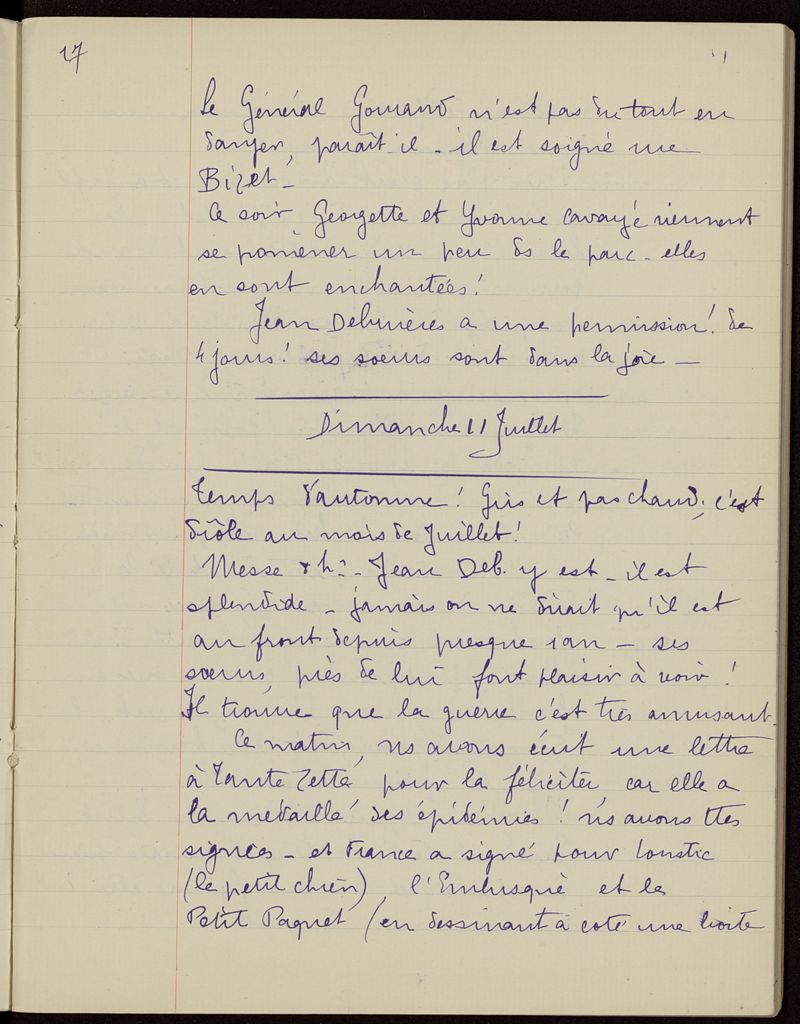 17
Le Général Gouraud n'est pas du tout en
danger, paraît-il - il est soigné rue
Bizet -
Ce soir, Georgette et Yvonne Cavayé viennent
se promener un peu ds le parc - elles
en sont enchantées !
Jean Debrières a une permission ! de
4 jours ! ses soeurs sont dans la joie -
Dimanche 11 Juillet
Temps d'automne ! Gris et pas chaud ; c'est
drôle au mois de Juillet !
Messe 8h½ - Jean Deb. y est - il est
splendide - jamais on ne dirait qu'il est
au front depuis presque 1 an - ses
soeurs, près de lui font plaisir à voir !
Il trouve que la guerre c'est très amusant -
Ce matin, ns avons écrit une lettre
à Tante Zette pour la féliciter, car elle a
la médaille des épidémies ! ns avons ttes
signées - et France a signé pour Loustic
(le petit chien), l'Embusqué et le
Petit Paquet (en dessinant à coté une boite